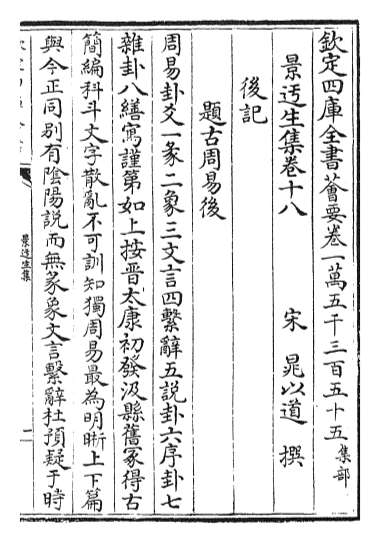 欽定四庫全書薈要卷一萬五千三百五十五 集部
景迃生集卷十八
宋 晁以道 撰
後記
題古周易後
周易卦爻一彖二象三文言四繫辭五說卦六序卦七
雜卦八繕寫謹第如上按晉太康初發汲縣舊冢得古
簡編科斗文字散亂不可訓知獨周易最為明晰上下篇
與今正同别有陰陽說而無彖象文言繫辭杜預疑于時
景迃生集
一